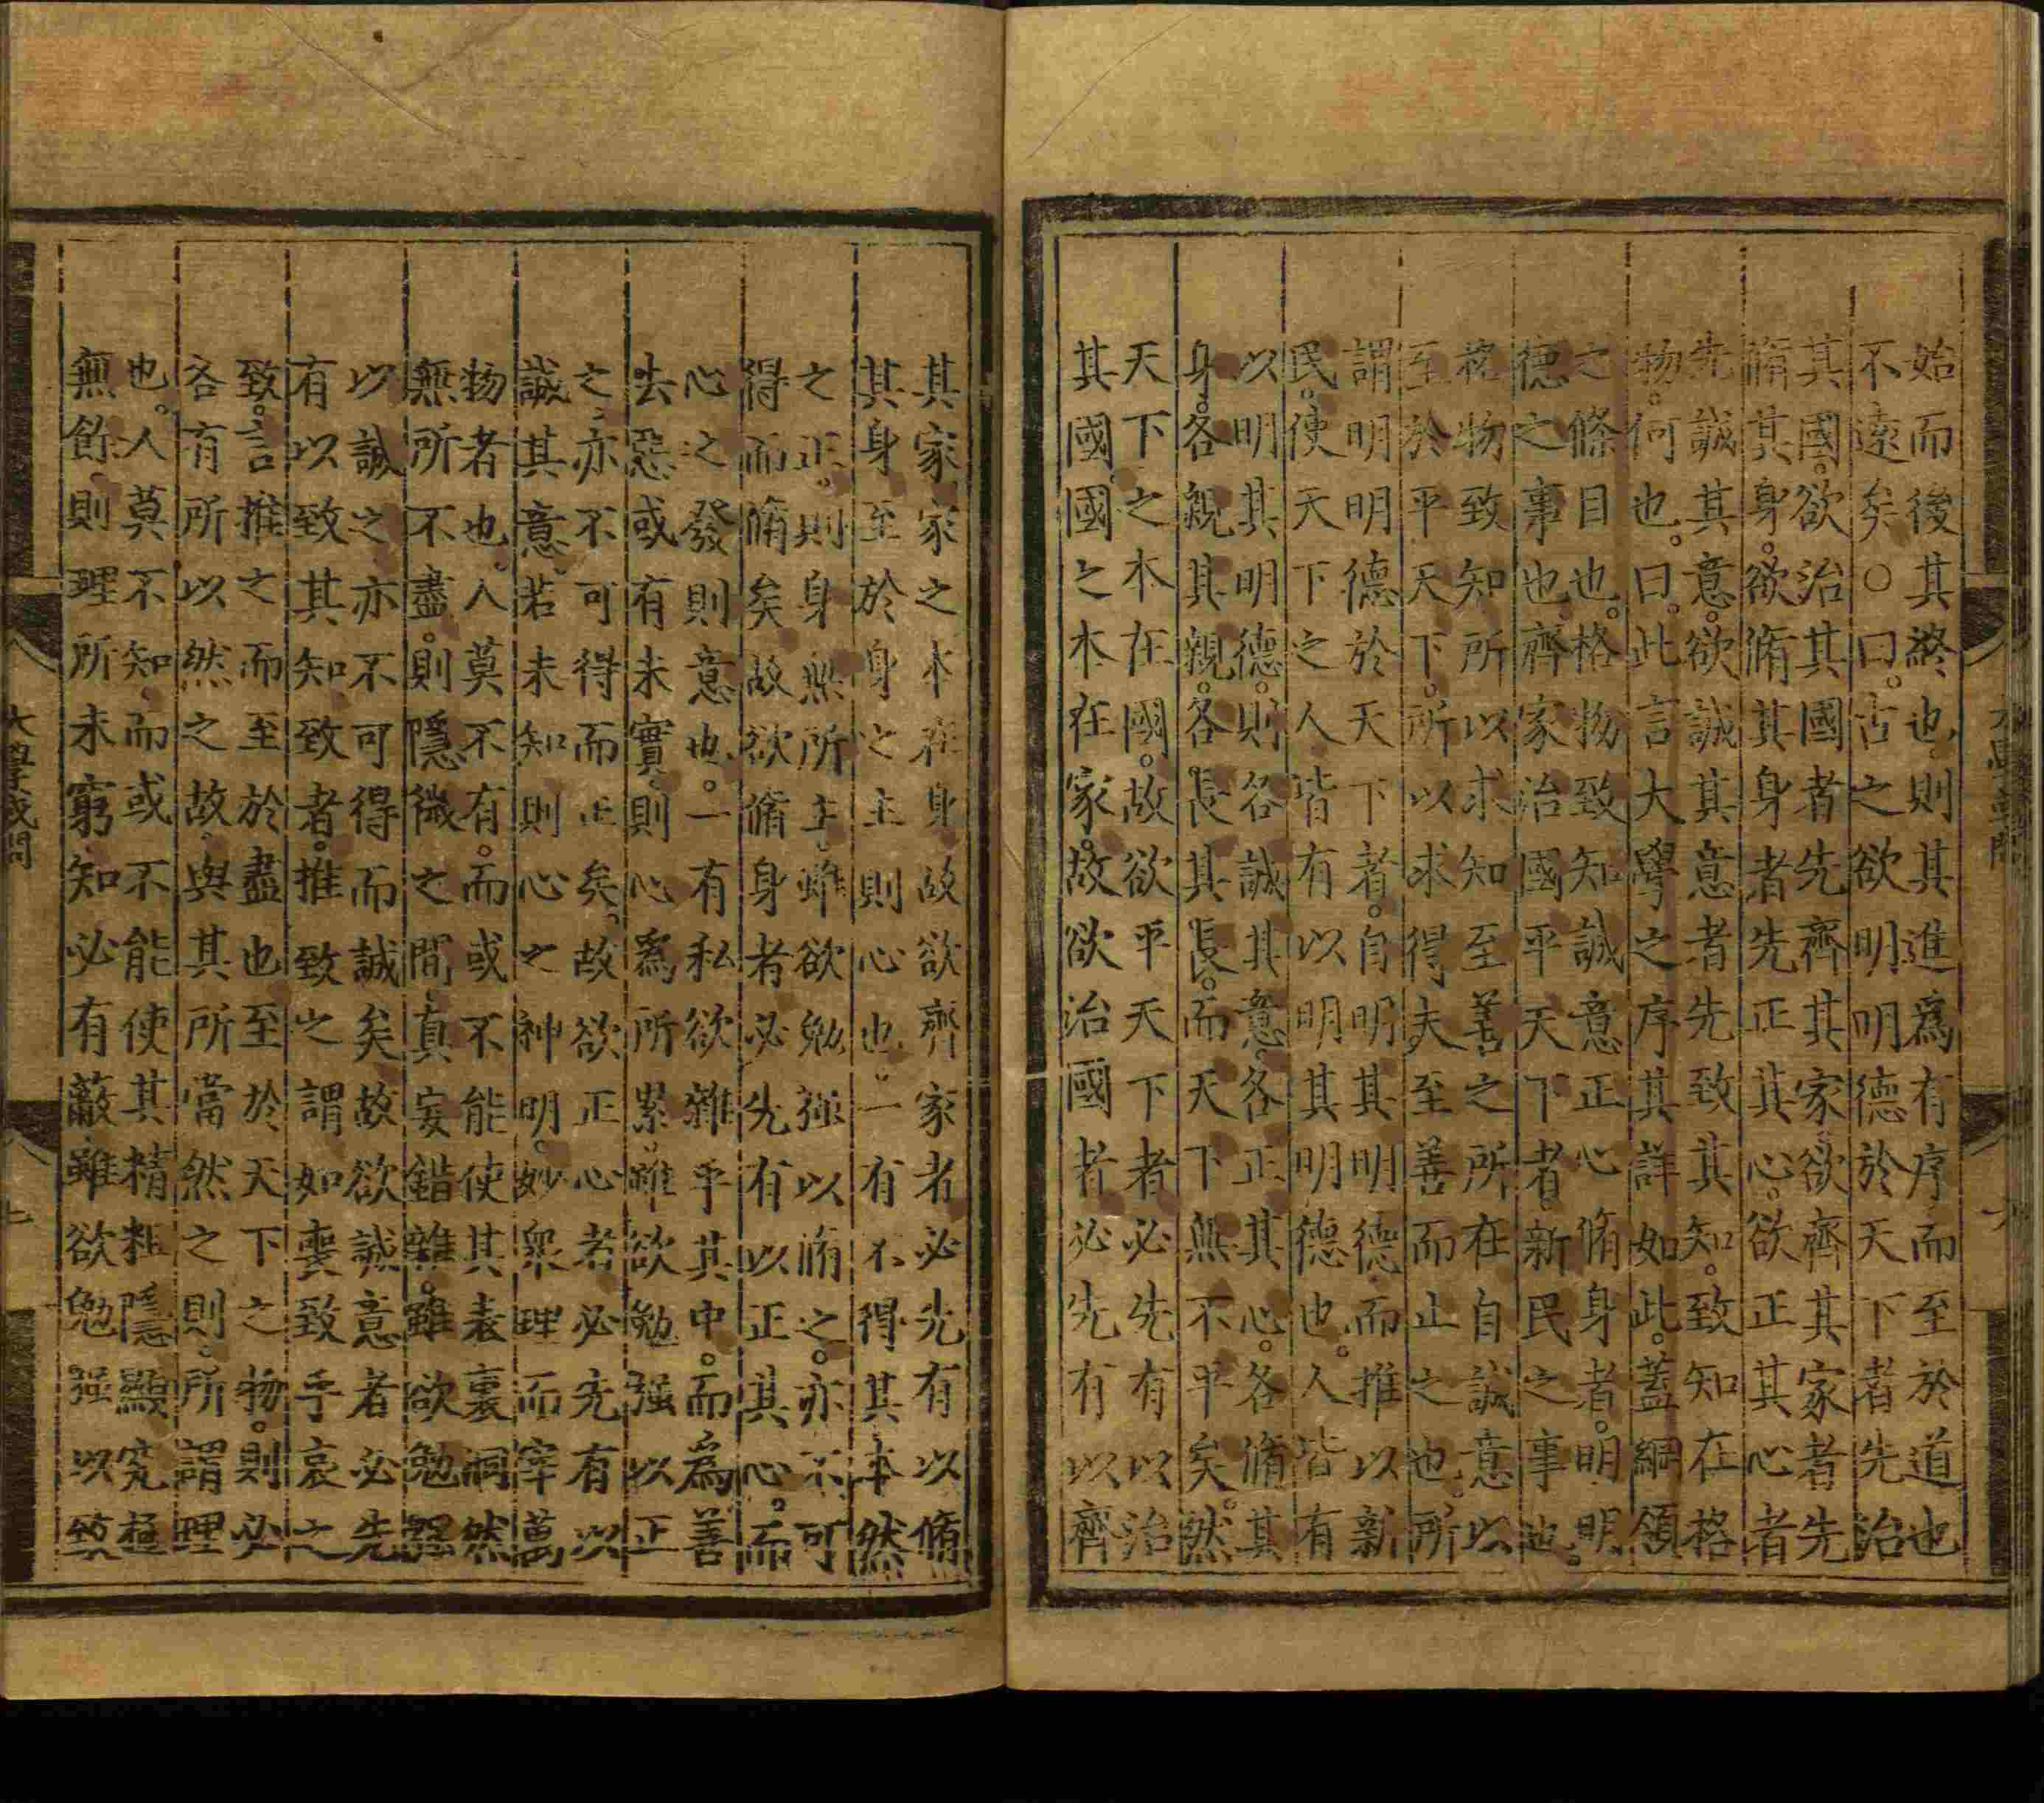 始而後其終也則其進爲有序而至於道也
不遠矣〇曰古之欲明明德於天下者先治
其國欲治其國者先齊其家欲齊其家者先
脩其身欲脩其身者先正其心欲正其心者
先誠其意欲誠其意者先致其知致知在格
物何也曰此言大學之序其詳如此蓋綱領
之條目也格物致知誠意正心脩身者明明
德之事也齊家治國平天下者新民之事也
格物致知所以求知至善之所在自誠意以
至於平天下所以求得夫至善而止之也所
謂明明德於天下者自明其明德而推以新
民使天下之人皆有以明其明德也人皆有
以明其明德則各誠其意各正其心各脩其
身各親其親各長其長而天下無不平矣然
天下之本在國故欲平天下者必先有以治
其國國之本在家故欲治國者必先有以齊
其家家之本在身故欲齊家者必先有以脩
其身至於身之主則心也一有不得其本然
之正則身無所主雖欲勉强以脩之亦不可
得而脩矣故欲脩身者必先有以正其心而
心之發則意也一有私欲雜乎其中而爲善
去惡或有未實則心爲所累雖欲勉强以正
之亦不可得而正矣故欲正心者必先有以
誠其意若未知則心之神明妙衆理而宰萬
物者也人莫不有而或不能使其表裏洞然
無所不盡則隱微之間真妄錯雜雖欲勉强
以誠之亦不可得而誠矣故欲誠意者必先
有以致其知致者推致之謂如喪致乎哀之
致言推之而至於盡也至於天下之物則必
各有所以然之故與其所當然之則所謂理
也人莫不知而或不能使其精粗隱顯究極
無餘則理所未窮知必有蔽雖欲勉强以致
大學或問
七